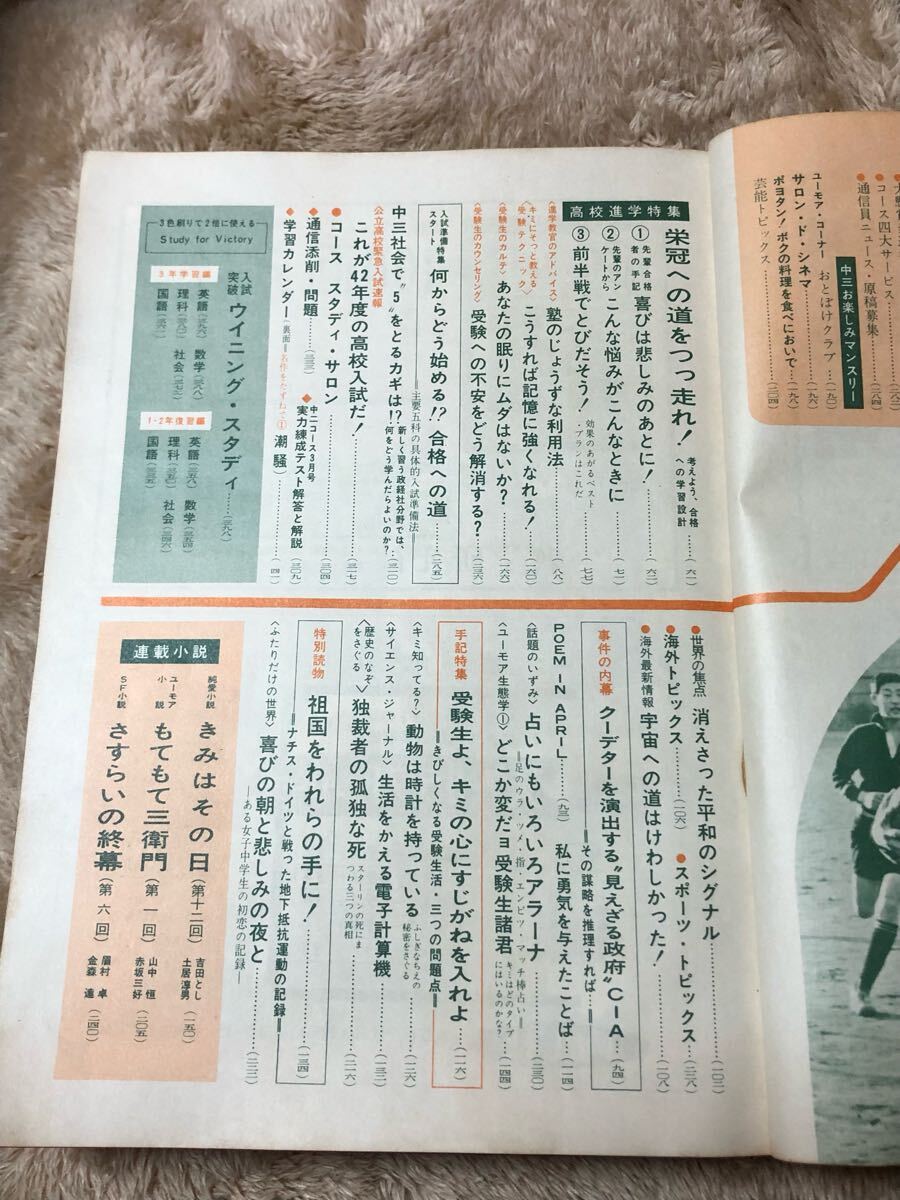 大
コース四大サービス……(二八二)
通信員ニュース・原稿募集
中三お楽しみマンスリー
ユーモア・コーナー おとぼけクラブ……(一九〇)
サロン・ド・シネマ……(一九八)
ボヨタン！ボクの料理を食べにおいで
芸能トピックス……(二〇四)
高校進学特集
栄冠への道をつつ走れ！ 考えよう、合格への学習設計……(六一)
① 先輩合格者の手記 喜びは悲しみのあとに！……(六二)
② 先輩のアンケートから こんな悩みがこんなときに……(七一)
③ 前半戦でとびだそう！ 効果のあがるベスト・プランはこれだ……(七七)
〈進学教官のアドバイス〉 塾のじょうずな利用法……(八八)
〈キミにそっと教える受験テクニック〉 こうすれば記憶に強くなれる！……(一六〇)
〈受験生のカルテ〉 あなたの眠りにムダはないか？……(一六六)
〈受験生のカウンセリング〉 受験への不安をどう解消する？……(二三六)
入試準備特集スタート 何からどう始める!? 合格への道……(二八五)
＝主要五科の具体的入試準備法＝
中三社会で"5"をとるカギは!? 新しく習う政経社分野では、何をどう学んだらよいのか？……(三一〇)
公立高校緊急入試速報
これが42年度の高校入試だ！……(三一七)
コース スタディ・サロン……(三〇四)
通信添削・問題……(三三三)
中二コース3月号 実力練成テスト解答と解説……(三〇九)
学習カレンダー(裏面＝名作をたずねて① 潮騒)……(四一)
3色刷りで2倍に使える
Study for Victory
入試突破 ウイニング・スタディ……(三九八)
3年学習編
英語(三九六) 数学(三八八)
理科(三八〇) 社会(三七二)
国語(三六二)
1・2年復習編
英語(三五八) 数学(三五四)
理科(三五〇) 社会(三四六)
国語(三四二)
世界の焦点 消えさった平和のシグナル……(一〇二)
海外トピックス……(一〇六)
スポーツ・トピックス……(二三八)
海外最新情報 宇宙への道はけわしかった！……(一〇八)
事件の内幕 クーデターを演出する"見えざる政府"CIA……(九四)
＝その謀略を推理すれば＝
POEM IN APRIL……(九三)
私に勇気を与えたことば……(一一四)
〈話題のいずみ〉 占いにもいろいろアラーナ……(二三〇)
＝足のウラ・ツメ・指・エンピツ・マッチ棒占い＝
〈ユーモア生態学①〉 どこか変だョ受験生諸君 キミはどのタイプにはいるのかな？……(一四四)
手記特集 受験生よ、キミの心にすじがねを入れよ……(一一六)
＝きびしくなる受験生活・三つの問題点＝
〈キミ知ってる？〉 動物は時計を持っている ふしぎなちえの秘密をさぐる……(一二六)
〈サイエンス・ジャーナル〉 生活をかえる電子計算機
〈歴史のなぞをさぐる〉 独裁者の孤独な死 スターリンの死にまつわる三つの真相……(二一六)
特別読物 祖国をわれらの手に！……(一三四)
＝ナチス・ドイツと戦った地下抵抗運動の記録＝
〈ふたりだけの世界〉 喜びの朝と悲しみの夜と……(二二二)
―ある女子中学生の初恋の記録―
連載小説
純愛小説 きみはその日(第十二回) 吉田とし 土居淳男……(一五〇)
ユーモア小説 もてもて三衛門(第一回) 山中 恒 赤坂三好……(二〇五)
SF小説 さすらいの終幕(第六回) 眉村 卓 金森 達……(二四〇)